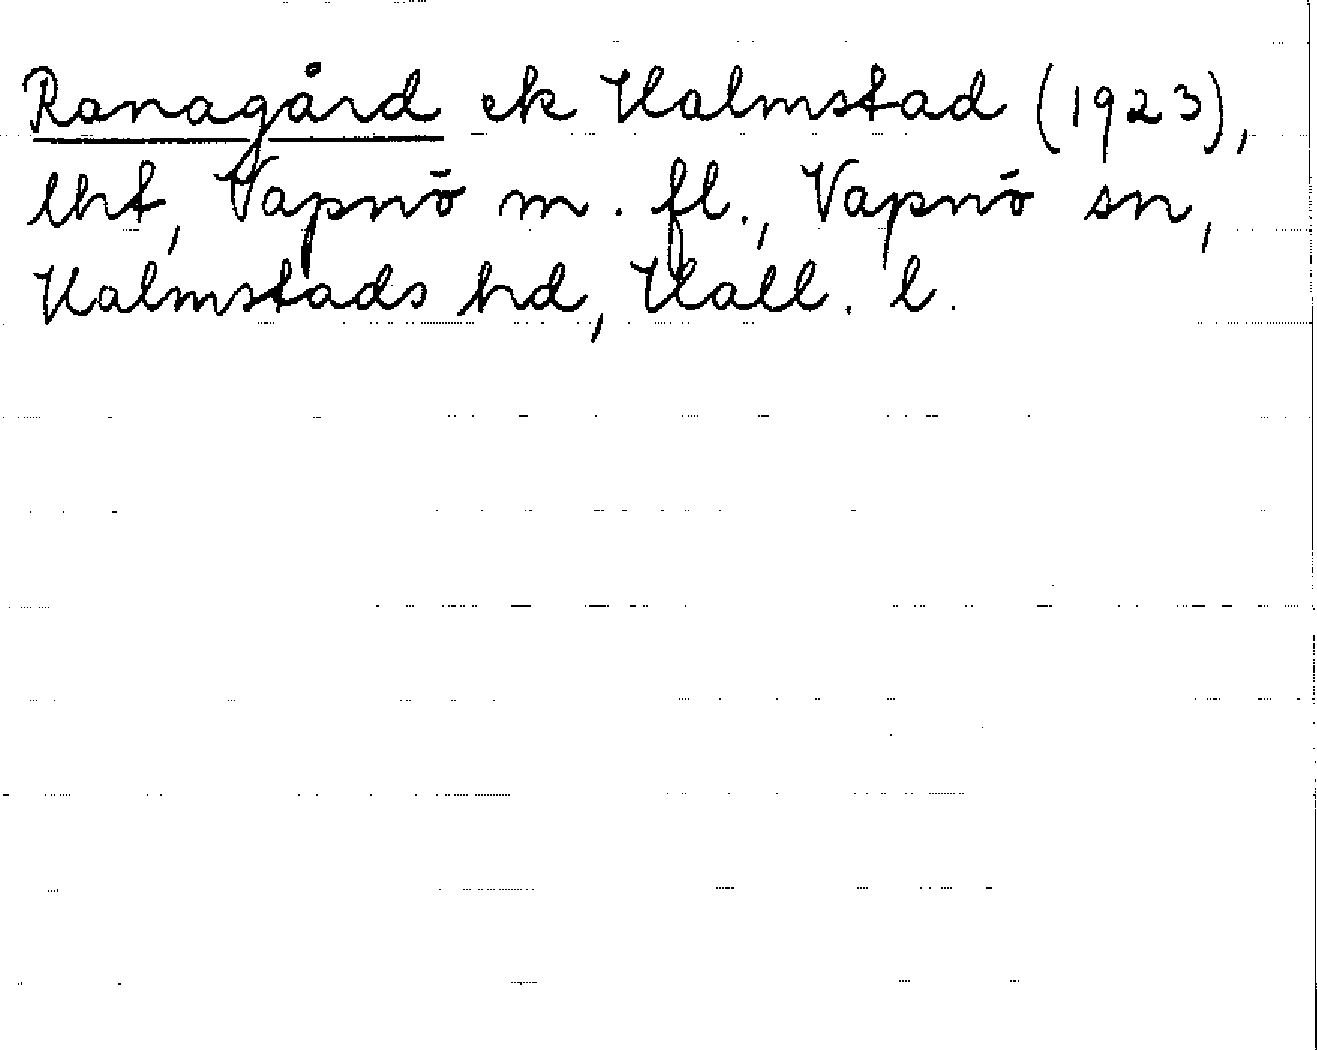 Ranagård ek Halmstad (1923),
lht, Vapnö m. fl., Vapnö sn,
Halmstads hd, Hall. l.